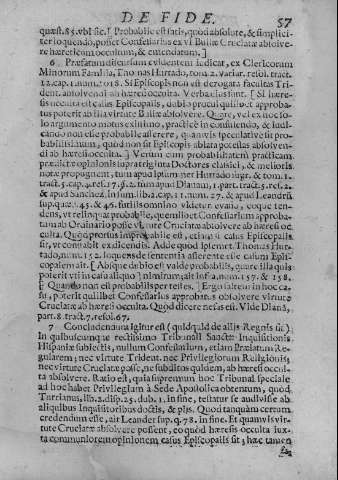 DE FIDE. 57
quæst.85. vbi sic. [ Probabile est satis, quòd absolutè, & simplici-
ter loquendo, posset Confessarius ex vi Bullæ Cruciatæ absolve-
re hæreticum occultum, & emendatum. ]
6 Præfatum discursum evidenter iudicat, ex Clericorum
Minorum Familia, Thomas Hurtado, tom. 2. variar. resol. tract.
12. cap. 1. num. 2018. Si Episcopis non est derogata facultas Tri-
dent. absolvendi ab hæresi occulta. Verba eius sunt. [ Si hære-
sis occulta est casus Episcopalis, dubio procul quilibet approba-
tus poterit ab illa virtute Bullæ absolvere. Quare, vel ex nos-
lo argumento motus existimo, practicè in consulendo, & iudi-
cando non esse probabile asserere, quamvis speculativè sit pro-
babilissimum, quòd non sit Episcopis ablata potestas absolven-
di ab hæresi occulta. ] Verùm cum probabilitatem practicam
prædictæ opinionis supra triginta Doctores classici, & melioris
notæ propugnent, tum apud ipsummet Hurtado iugr. & tom. 1.
tract. 5. cap. 4. res. 17. §. 2. tum apud Dianam, 1. part. tract. 5. res. 2.
& apud Sanchez, in sum. lib. 2. cap. 11. num. 27. & apud Leandrũ
supr. quæ. 45. & 46. futilis omnino videtur evasio, conque ten-
dens, vt relinquat probabile, quemlibet Confessarium approba-
tum ab Ordinario posse virtute Cruciatæ absolvere ab hæresi oc-
culta. Quòd prorsus improbabile est, etiamsi casus Episcopalis
sit, vt constabit ex dicendis. Adde quod ipsemet Thomas Hur-
tado, num. 152. loquens de sententia asserente esse casum Epis-
copalem ait. [ Absque dubio est valde probabilis, quare illa quis
poterit vti in casu aliquo ] nimirum, ait infra, num. 157. & 158.
[ Quando non est probabilis per testes. ] Ergo saltem in hoc ca-
su, poterit quilibet Confessarius approbatus absolvere virtute
Cruciatæ ab hæresi occulta. Quod dicere nefas est. Vide Diana,
part. 8. tract. 7. resol. 67.
7 Concludendum igitur est ( quidquid de alijs Regnis sit )
In quibuscumque rectissimo Tribunali Sanctæ Inquisitionis
Hispaniæ subiectis, nullum Confessarium, etiam Prælatum Re-
gularem; nec virtute Trident. nec Privilegiorum Religionis;
nec virtute Cruciatæ posse, ne subditos quidem, ab hæresi occul-
ta absolvere. Ratio est, quia supremum hoc Tribunal speciale
ad hoc habet Privilegium à Sede Apostolica obtentum, quod,
Turrianus, lib. 2. disp. 25. dub. 1. in fine, testatur se audivisse ab
aliquibus Inquisitoribus doctis, & pijs. Quod tanquàm certum
credendum esse, ait Leander sup. q. 78. in fine. Et quamvis vir-
tute Cruciatæ absolvere possent, eo quòd hæresis occulta iux-
ta communiorem opinionem casus Episcopalis sit; hæc tamen